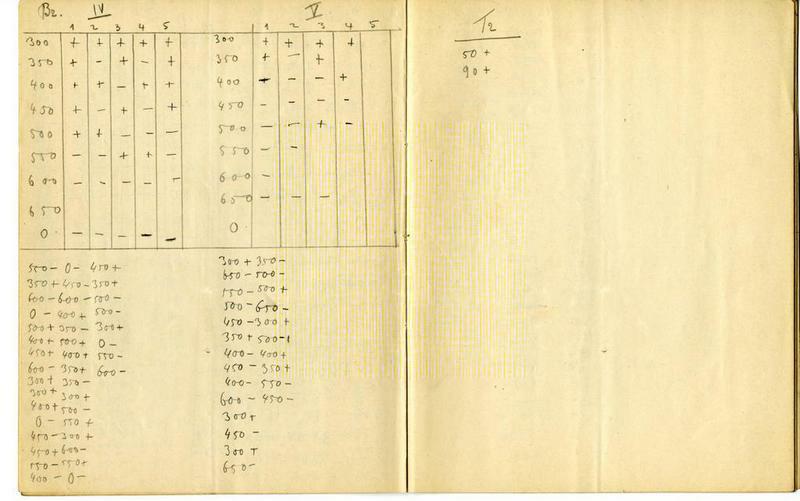 Bz. IV
1 2 3 4 5
300 + + + + +
350 + - + - +
400 + + - + +
450 + - + - +
500 + + - - -
550 - - + + -
600 - - - - -
650
0 - - - - -
V
1 2 3 4 5
300 + + + +
350 + - +
400 + - - +
450 - - - -
500 - - + -
550 - -
600 -
650 - - -
0
550 - 0 - 450 +
350 + 450 - 350 +
600 - 600 - 500 -
0 - 400 + 500 -
500 + 350 - 300 +
400 + 500 + 0 -
450 + 400 + 550 -
600 - 350 + 600 -
300 + 350 -
300 + 300 +
400 + 500 -
0 - 550 +
450 - 300 +
450 + 600 -
550 - 550 +
400 - 0 -
300 + 350 -
650 - 500 -
550 - 500 +
500 - 650 -
450 - 300 +
350 + 500 -
400 - 400 +
450 - 350 +
400 - 550 -
600 - 450 -
300 +
450 -
300 +
650 -
T2
50 +
90 +